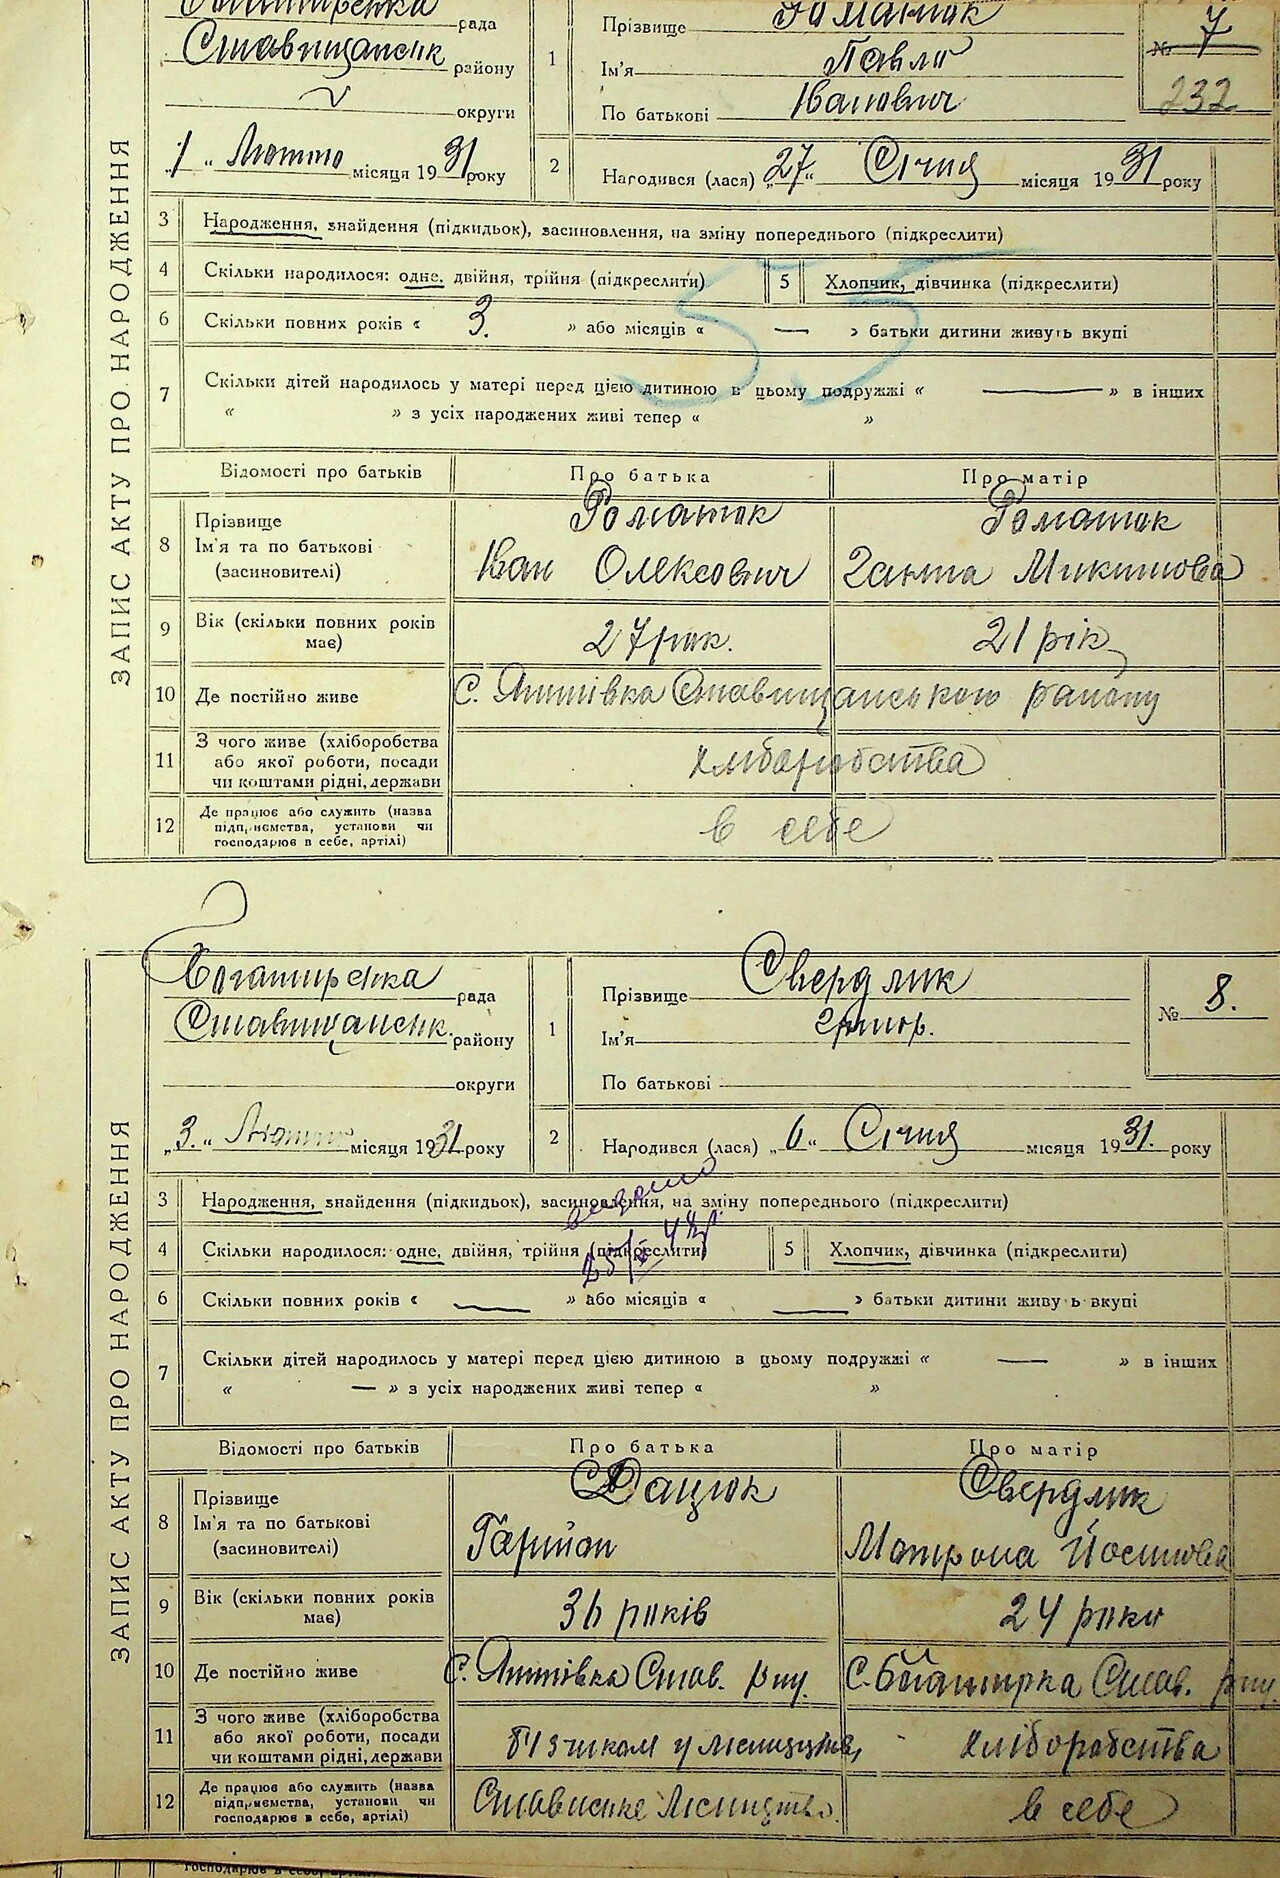 рада
Ставищанськ району
округи
„1" Лютого місяця 1931 року
1
Прізвище Романюк
Ім'я Павло
По батькові Іванович
№ 7
232
2
Народився (лася) „27" Січня місяця 1931 року
ЗАПИС АКТУ ПРО НАРОДЖЕННЯ
3 Народження, знайдення (підкидьок), засиновлення, на зміну попереднього (підкреслити)
4 Скільки народилося: одне, двійня, трійня (підкреслити) 5 Хлопчик, дівчинка (підкреслити)
55
6 Скільки повних років « 3. » або місяців « — » батьки дитини живуть вкупі
7 Скільки дітей народилось у матері перед цією дитиною в цьому подружжі « — » в інших
« » з усіх народжених живі тепер « »
Відомості про батьків Про батька Про матір
8 Прізвище Романюк Романюк
Ім'я та по батькові Іван Олексович Ганна Микитова
(засиновителі)
9 Вік (скільки повних років має) 27 рок. 21 рік
10 Де постійно живе С. Антівка Ставищанського району
11 З чого живе (хліборобства
або якої роботи, посади хліборобства
чи коштами рідні, держави
12 Де працює або служить (назва
підприємства, установи чи в себе
господарює в себе, артілі)
Богатирська рада
Ставищанськ. району
округи
„3." Лютого місяця 1931 року
1
Прізвище Свердлик
Ім'я Григор.
По батькові
№ 8.
2
Народився (лася) „6" Січня місяця 1931. року
ЗАПИС АКТУ ПРО НАРОДЖЕННЯ
3 Народження, знайдення (підкидьок), засиновлення, на зміну попереднього (підкреслити)
видано
4 Скільки народилося: одне, двійня, трійня (підкреслити) 5 Хлопчик, дівчинка (підкреслити)
6 Скільки повних років « — » або місяців « — » батьки дитини живуть вкупі
7 Скільки дітей народилось у матері перед цією дитиною в цьому подружжі « — » в інших
« — » з усіх народжених живі тепер « »
Відомості про батьків Про батька Про матір
8 Прізвище Дацюк Свердлик
Ім'я та по батькові Мотрона Йосипова
(засиновителі)
9 Вік (скільки повних років має) 36 років 24 роки
10 Де постійно живе С. Антівка Став. р-ну. С. Богатирка Став. р-ну.
11 З чого живе (хліборобства
або якої роботи, посади хліборобства
чи коштами рідні, держави
12 Де працює або служить (назва
підприємства, установи чи лісництво в себе
господарює в себе, артілі)
господарює в себе, артілі)